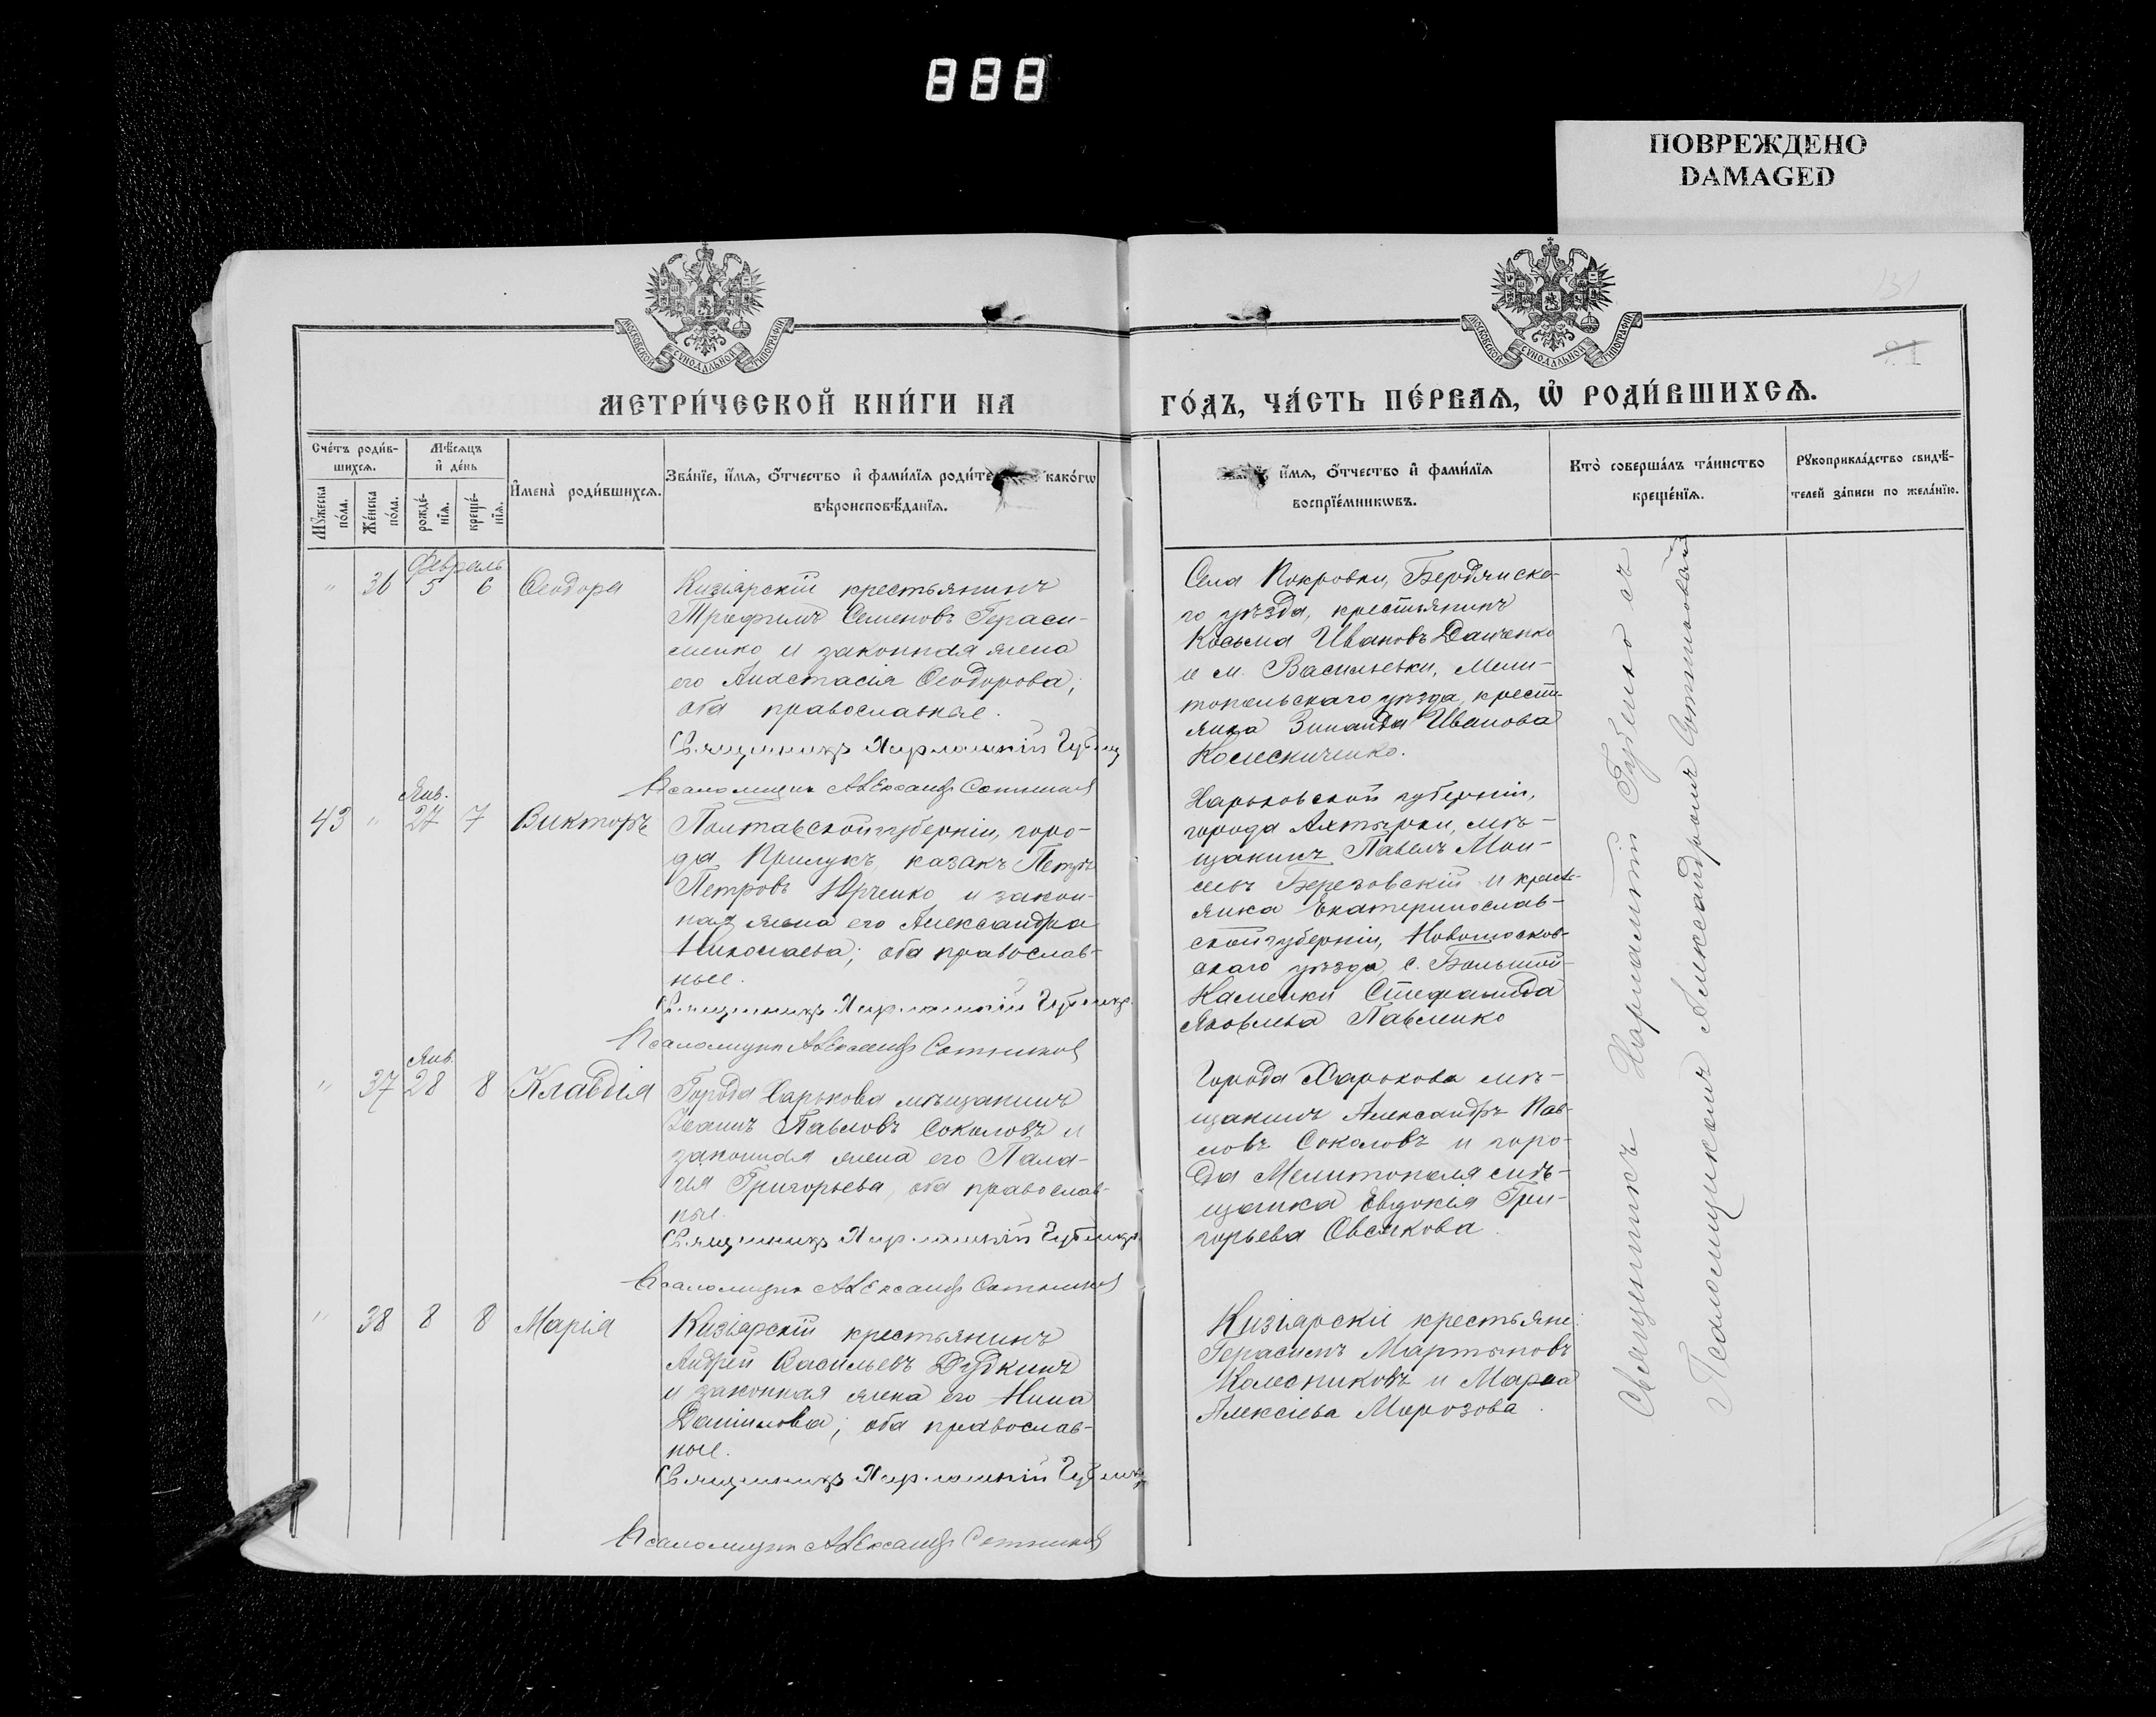 888
ПОВРЕЖДЕНО
DAMAGED
МОСКОВСКОЙ СѴНОДАЛЬНОЙ ТИПОГРАФІИ
МОСКОВСКОЙ СѴНОДАЛЬНОЙ ТИПОГРАФІИ
131
МЕТРИ́ЧЕСКОЙ КНИ́ГИ НА
ГО́ДЪ, ЧА́СТЬ ПЕ́РВАѦ, Ѡ҆ РОДИ́ВШИХСѦ.
Сче́тъ роди́в-
шихсѧ.
Мꙋ́жеска
по́ла.
Же́нска
по́ла.
Мѣ́сѧцъ
и҆ де́нь
рожде́-
нїѧ.
креще́-
нїѧ.
И҆мена̀ роди́вшихсѧ.
Зва́нїе, и҆́мѧ, ѻ҆́тчество и҆ фами́лїѧ роди́те како́гѡ
вѣроисповѣ́данїѧ.
и҆́мѧ, ѻ҆́тчество и҆ фами́лїѧ
воспрїе́мникѡвъ.
Кто̀ соверша́лъ та́инство
креще́нїѧ.
Рꙋкоприкла́дство свидѣ́-
телей за́писи по жела́нїю.
Февраль
" 36 5 6 Ѳеодора
Кизіярскій крестьянинъ
Трофимъ Семеновъ Гераси-
менко и законная жена
его Анастасія Ѳеодорова;
оба православные.
Священникъ Харлампій Губ
Псаломщикъ Александръ Сотников
Села Покровки, Бердянска-
го уѣзда, крестьянинъ
Косьма Ивановъ Даценко
и м. Васильевки, Мели-
топольскаго уѣзда, кресть
янка Зинаида Иванова
Колесниченко.
Янв.
43 " 27 7 Викторъ
Полтавской губерніи, горо-
да Прилукъ, казакъ Петръ
Петровъ Юрченко и закон-
ная жена его Александра
Николаева; оба православ-
ные.
Священникъ Харлампій Губ
Псаломщикъ Александръ Сотников
Харьковской губерніи,
города Ахтырки, мѣ-
щанинъ Павелъ Мои-
сеевъ Березовскій и кресть-
янка Екатеринослав-
ской губерніи, Новомосков-
скаго уѣзда, с. Большой-
Каменки Стефанида
Яковлева Павленко
Янв.
" 37 28 8 Клавдія
Города Харькова мѣщанинъ
Іоаннъ Павловъ Соколовъ и
законная жена его Пала-
гія Григорьева, оба православ-
ные.
Священникъ Харлампій Губ
Псаломщикъ Александръ Сотников
Города Харькова мѣ-
щанинъ Александръ Пав-
ловъ Соколовъ и горо-
да Мелитополя мѣ-
щанка Евдокія Гри-
горьева Овсякова.
" 38 8 8 Марія
Кизіярскій крестьянинъ
Андрей Васильевъ Дудкинъ
и законная жена его Нина
Даніилова; оба православ-
ные.
Священникъ Харлампій Губ
Псаломщикъ Александръ Сотников
Кизіярскіе крестьяне:
Герасимъ Мартыновъ
Колесниковъ и Марѳа
Алексіева Морозова.
Священникъ Харлампій Губ съ
Псаломщикомъ Александромъ